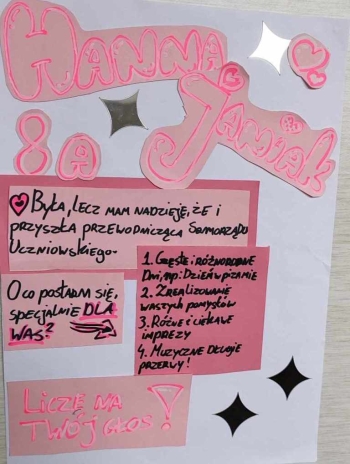 HANNA
JAMIAK
8 A
BYŁA, LECZ MAM NADZIEJĘ, ŻE I
PRZYSZŁA PRZEWODNICZĄCA SAMORZĄDU
UCZNIOWSKIEGO.
O CO POSTARAM SIĘ,
SPECJALNIE DLA
WAS?
1. CZĘSTE I RÓŻNORODNE
DNI, NP: DZIEŃ W PIŻAMIE
2. ZREALIZOWANIE
WASZYCH POMYSŁÓW
3. RÓŻNE I CIEKAWE
IMPREZY
4. MUZYCZNE DŁUGIE
PRZERWY!
LICZĘ NA
TWÓJ GŁOS!